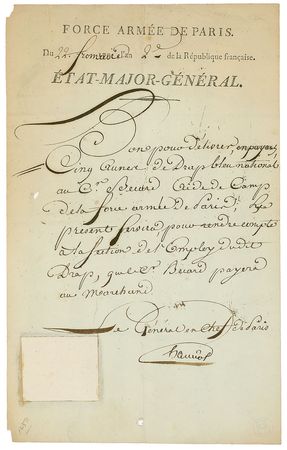 FORCE ARMÉE DE PARIS.
Du 22 frimaire l'an 2e de la République française.
ÉTAT-MAJOR-GÉNÉRAL.
Bon pour délivrer, en payant,
Cinq Aunes de Drap bleu national
au Cen. Aide de Camp
de la force armée de Paris. Le
present servira pour rendre compte
a la section de l'Employ du dit
Drap, que le Cen. payera
au Marchand
Le Général en Chef de Paris